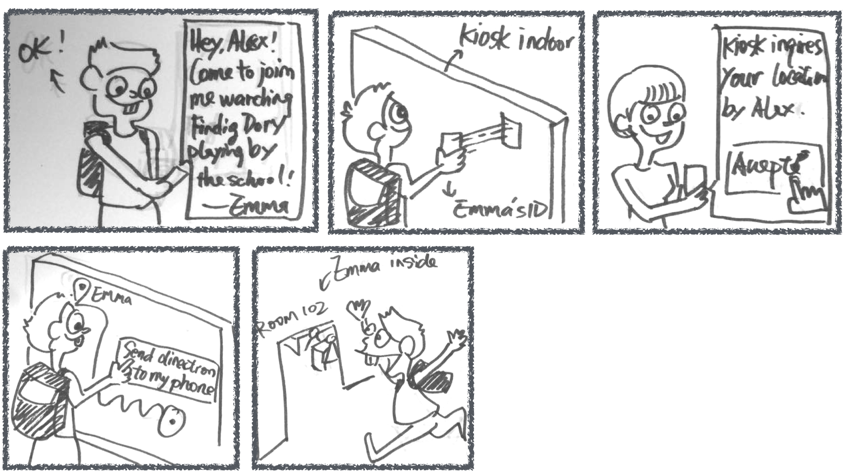 OK!
Hey, Alex!
Come to join
me warching
Findig Dory
playing by
the school!
— Emma
Kiosk indoor
Emma's ID
Kiosk inqires
your location
by Alex.
Accept
Emma
Send direction
to my phone
Emma inside
ROOM 102